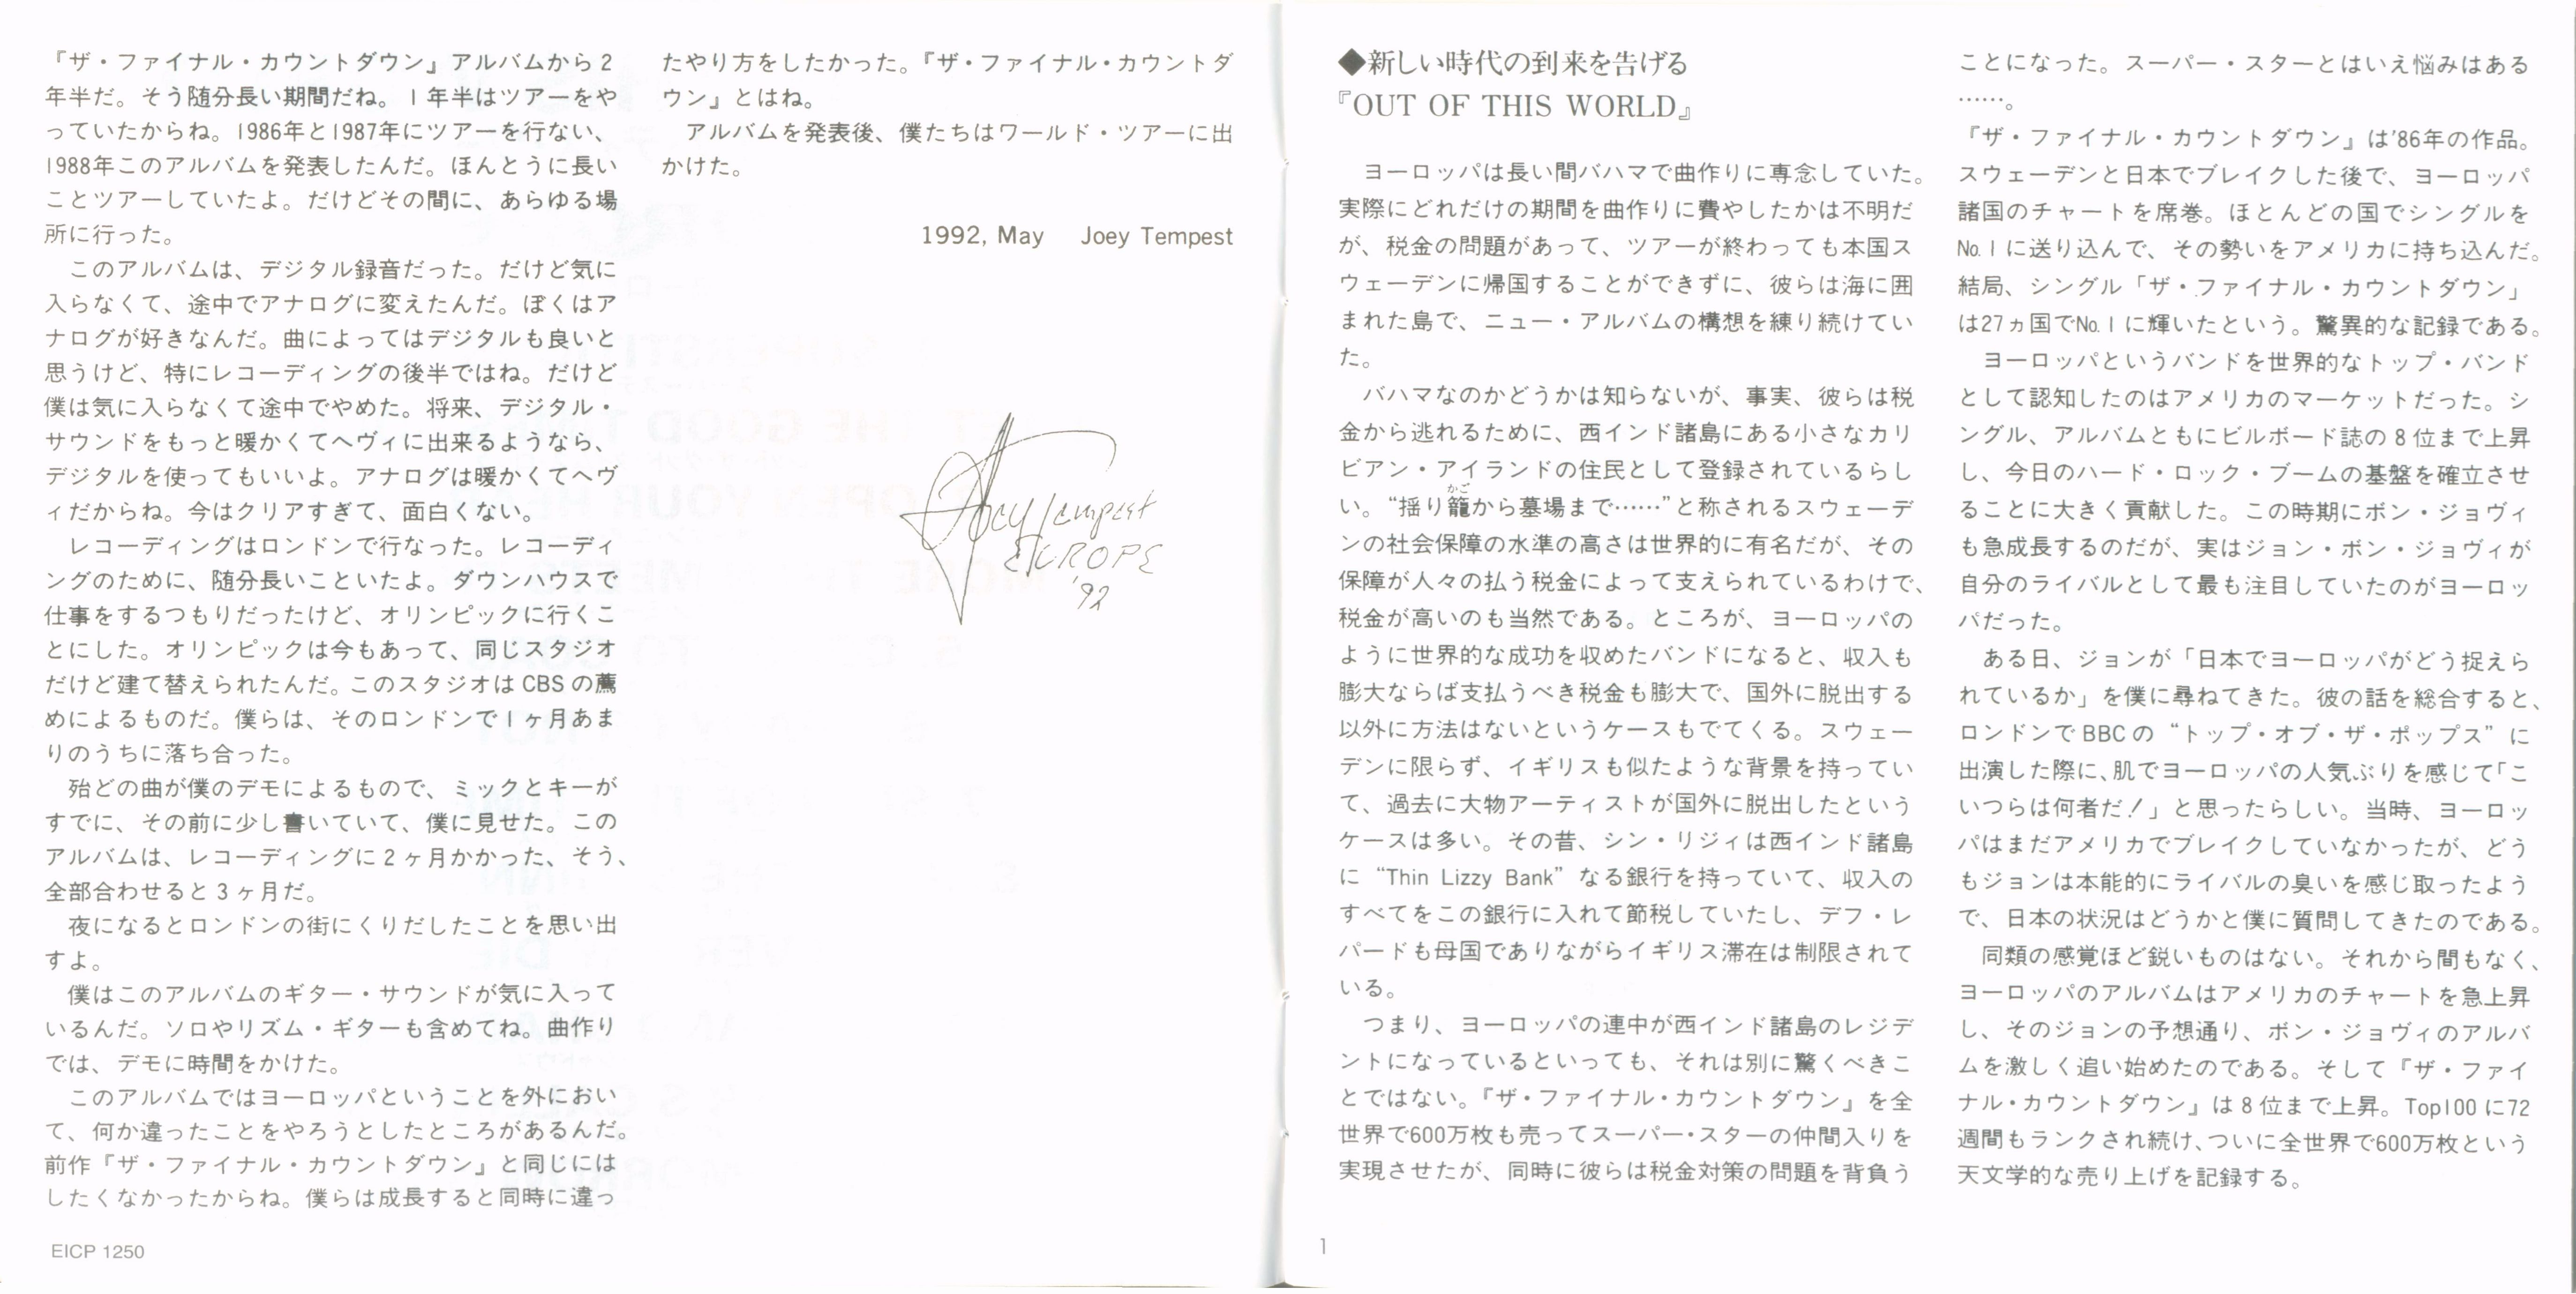 『ザ・ファイナル・カウントダウン』アルバムから２
年半だ。そう随分長い期間だね。１年半はツアーをや
っていたからね。1986年と1987年にツアーを行ない、
1988年このアルバムを発表したんだ。ほんとうに長い
ことツアーしていたよ。だけどその間に、あらゆる場
所に行った。
　このアルバムは、デジタル録音だった。だけど気に
入らなくて、途中でアナログに変えたんだ。ぼくはア
ナログが好きなんだ。曲によってはデジタルも良いと
思うけど、特にレコーディングの後半ではね。だけど
僕は気に入らなくて途中でやめた。将来、デジタル・
サウンドをもっと暖かくてヘヴィに出来るようなら、
デジタルを使ってもいいよ。アナログは暖かくてヘヴ
ィだからね。今はクリアすぎて、面白くない。
　レコーディングはロンドンで行なった。レコーディ
ングのために、随分長いこといたよ。ダウンハウスで
仕事をするつもりだったけど、オリンピックに行くこ
とにした。オリンピックは今もあって、同じスタジオ
だけど建て替えられたんだ。このスタジオは CBS の薦
めによるものだ。僕らは、そのロンドンで１ヶ月あま
りのうちに落ち合った。
　殆どの曲が僕のデモによるもので、ミックとキーが
すでに、その前に少し書いていて、僕に見せた。この
アルバムは、レコーディングに２ヶ月かかった、そう、
全部合わせると３ヶ月だ。
　夜になるとロンドンの街にくりだしたことを思い出
すよ。
　僕はこのアルバムのギター・サウンドが気に入って
いるんだ。ソロやリズム・ギターも含めてね。曲作り
では、デモに時間をかけた。
　このアルバムではヨーロッパということを外におい
て、何か違ったことをやろうとしたところがあるんだ。
前作『ザ・ファイナル・カウントダウン』と同じには
したくなかったからね。僕らは成長すると同時に違っ
EICP 1250
たやり方をしたかった。『ザ・ファイナル・カウントダ
ウン』とはね。
　アルバムを発表後、僕たちはワールド・ツアーに出
かけた。
1992, May　Joey Tempest
Joey Tempest
EUROPE
'92
◆新しい時代の到来を告げる
『OUT OF THIS WORLD』
　ヨーロッパは長い間バハマで曲作りに専念していた。
実際にどれだけの期間を曲作りに費やしたかは不明だ
が、税金の問題があって、ツアーが終わっても本国ス
ウェーデンに帰国することができずに、彼らは海に囲
まれた島で、ニュー・アルバムの構想を練り続けてい
た。
　バハマなのかどうかは知らないが、事実、彼らは税
金から逃れるために、西インド諸島にある小さなカリ
ビアン・アイランドの住民として登録されているらし
い。“揺り籠かごから墓場まで……”と称されるスウェーデ
ンの社会保障の水準の高さは世界的に有名だが、その
保障が人々の払う税金によって支えられているわけで、
税金が高いのも当然である。ところが、ヨーロッパの
ように世界的な成功を収めたバンドになると、収入も
膨大ならば支払うべき税金も膨大で、国外に脱出する
以外に方法はないというケースもでてくる。スウェー
デンに限らず、イギリスも似たような背景を持ってい
て、過去に大物アーティストが国外に脱出したという
ケースは多い。その昔、シン・リジィは西インド諸島
に “Thin Lizzy Bank” なる銀行を持っていて、収入の
すべてをこの銀行に入れて節税していたし、デフ・レ
パードも母国でありながらイギリス滞在は制限されて
いる。
　つまり、ヨーロッパの連中が西インド諸島のレジデ
ントになっているといっても、それは別に驚くべきこ
とではない。『ザ・ファイナル・カウントダウン』を全
世界で600万枚も売ってスーパー・スターの仲間入りを
実現させたが、同時に彼らは税金対策の問題を背負う
1
ことになった。スーパー・スターとはいえ悩みはある
……。
『ザ・ファイナル・カウントダウン』は'86年の作品。
スウェーデンと日本でブレイクした後で、ヨーロッパ
諸国のチャートを席巻。ほとんどの国でシングルを
No.１に送り込んで、その勢いをアメリカに持ち込んだ。
結局、シングル「ザ・ファイナル・カウントダウン」
は27ヵ国でNo.１に輝いたという。驚異的な記録である。
　ヨーロッパというバンドを世界的なトップ・バンド
として認知したのはアメリカのマーケットだった。シ
ングル、アルバムともにビルボード誌の８位まで上昇
し、今日のハード・ロック・ブームの基盤を確立させ
ることに大きく貢献した。この時期にボン・ジョヴィ
も急成長するのだが、実はジョン・ボン・ジョヴィが
自分のライバルとして最も注目していたのがヨーロッ
パだった。
　ある日、ジョンが「日本でヨーロッパがどう捉えら
れているか」を僕に尋ねてきた。彼の話を総合すると、
ロンドンで BBC の “トップ・オブ・ザ・ポップス” に
出演した際に、肌でヨーロッパの人気ぶりを感じて「こ
いつらは何者だ！」と思ったらしい。当時、ヨーロッ
パはまだアメリカでブレイクしていなかったが、どう
もジョンは本能的にライバルの臭いを感じ取ったよう
で、日本の状況はどうかと僕に質問してきたのである。
　同類の感覚ほど鋭いものはない。それから間もなく、
ヨーロッパのアルバムはアメリカのチャートを急上昇
し、そのジョンの予想通り、ボン・ジョヴィのアルバ
ムを激しく追い始めたのである。そして『ザ・ファイ
ナル・カウントダウン』は８位まで上昇。Top100 に72
週間もランクされ続け、ついに全世界で600万枚という
天文学的な売り上げを記録する。